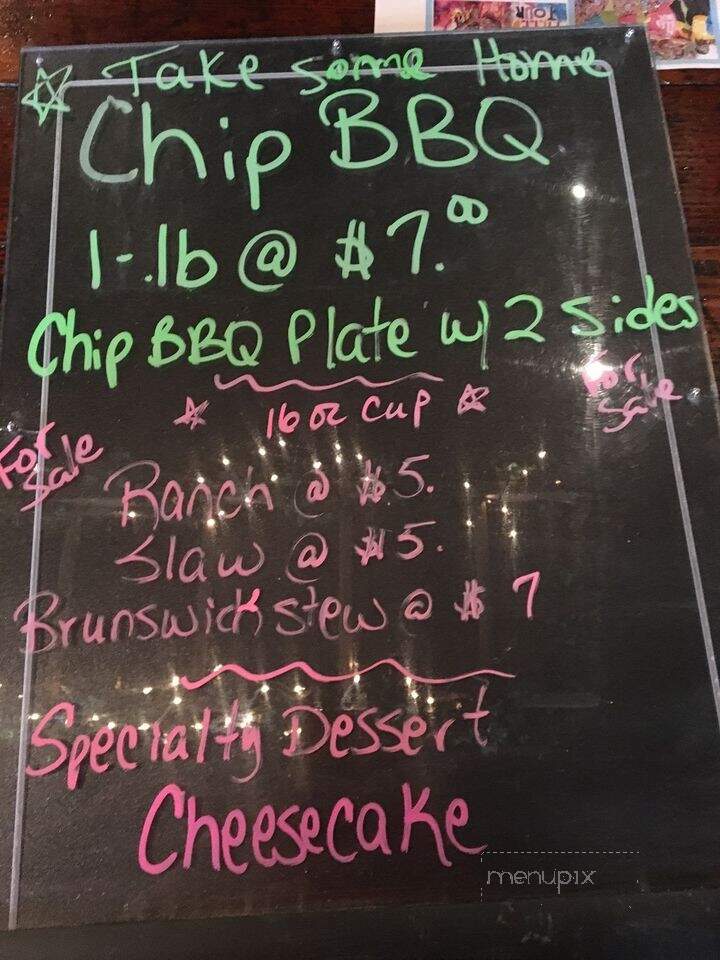 Take Some Home
Chip BBQ
1-lb @ $7.00
Chip BBQ Plate w/ 2 Sides
16 oz Cup
For Sale
For Sale
Ranch @ $5.
Slaw @ $5.
Brunswick stew @ $7
Specialty Dessert
Cheesecake
menupix